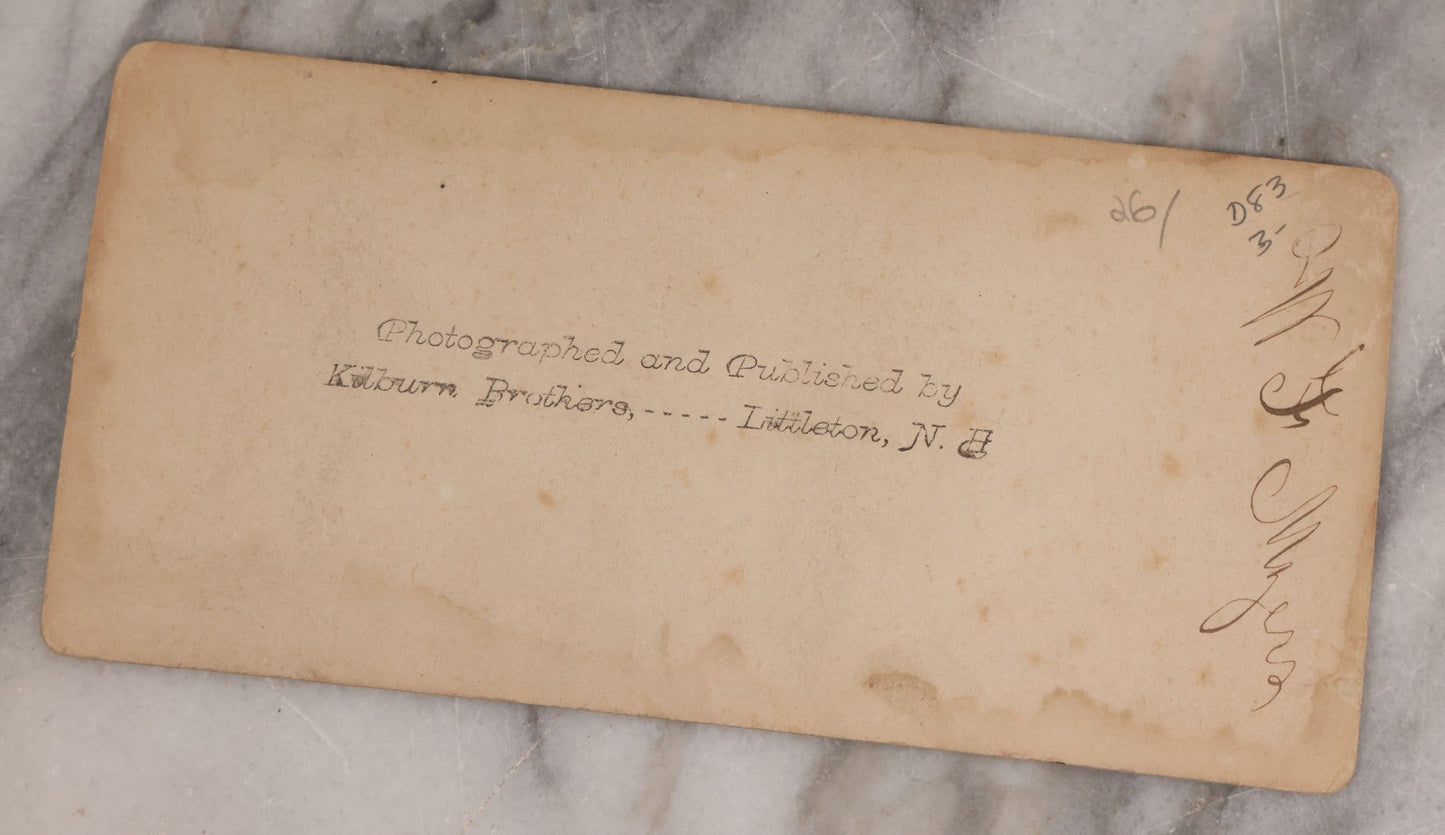 26/
D83
3-
Photographed and Published by
Kilburn Brothers, ----- Littleton, N. H
W. F. Myers